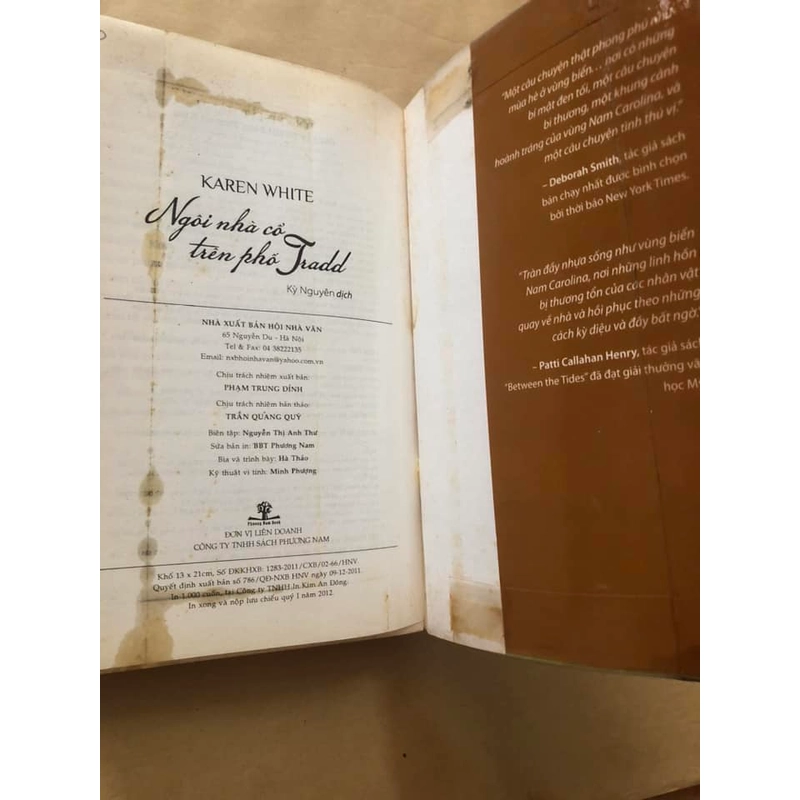 KAREN WHITE
Ngôi nhà cổ
trên phố Tradd
Kỳ Nguyên dịch
NHÀ XUẤT BẢN HỘI NHÀ VĂN
65 Nguyễn Du - Hà Nội
Tel & Fax: 04 38222135
Email: nxbhoinhavan@yahoo.com.vn
Chịu trách nhiệm xuất bản:
PHẠM TRUNG ĐỈNH
Chịu trách nhiệm bản thảo:
TRẦN QUANG QUÝ
Biên tập: Nguyễn Thị Anh Thư
Sửa bản in: BBT Phương Nam
Bìa và trình bày: Hà Thảo
Kỹ thuật vi tính: Minh Phượng
Phuong Nam Book
ĐƠN VỊ LIÊN DOANH
CÔNG TY TNHH SÁCH PHƯƠNG NAM
Khổ 13 x 21cm, Số ĐKKHXB: 1283-2011/CXB/02-66/HNV
Quyết định xuất bản số 786/QĐ-NXB HNV ngày 09-12-2011.
In 1.000 cuốn, tại Công ty TNHH In Kim An Đông.
In xong và nộp lưu chiểu quý 1 năm 2012.
"Một câu chuyện thật phong phú
mùa hè ở vùng biển... nơi có những
bí mật đen tối, một câu chuyện
bi thương, một khung cảnh
hoành tráng của vùng Nam Carolina, và
một câu chuyện tình thú vị."
– Deborah Smith, tác giả sách
bán chạy nhất được bình chọn
bởi thời báo New York Times.
"Tràn đầy nhựa sống như vùng biển
Nam Carolina, nơi những linh hồn
bị thương tổn của các nhân vật
quay về nhà và hồi phục theo những
cách kỳ diệu và đầy bất ngờ."
– Patti Callahan Henry, tác giả sách
"Between the Tides" đã đạt giải thưởng
học